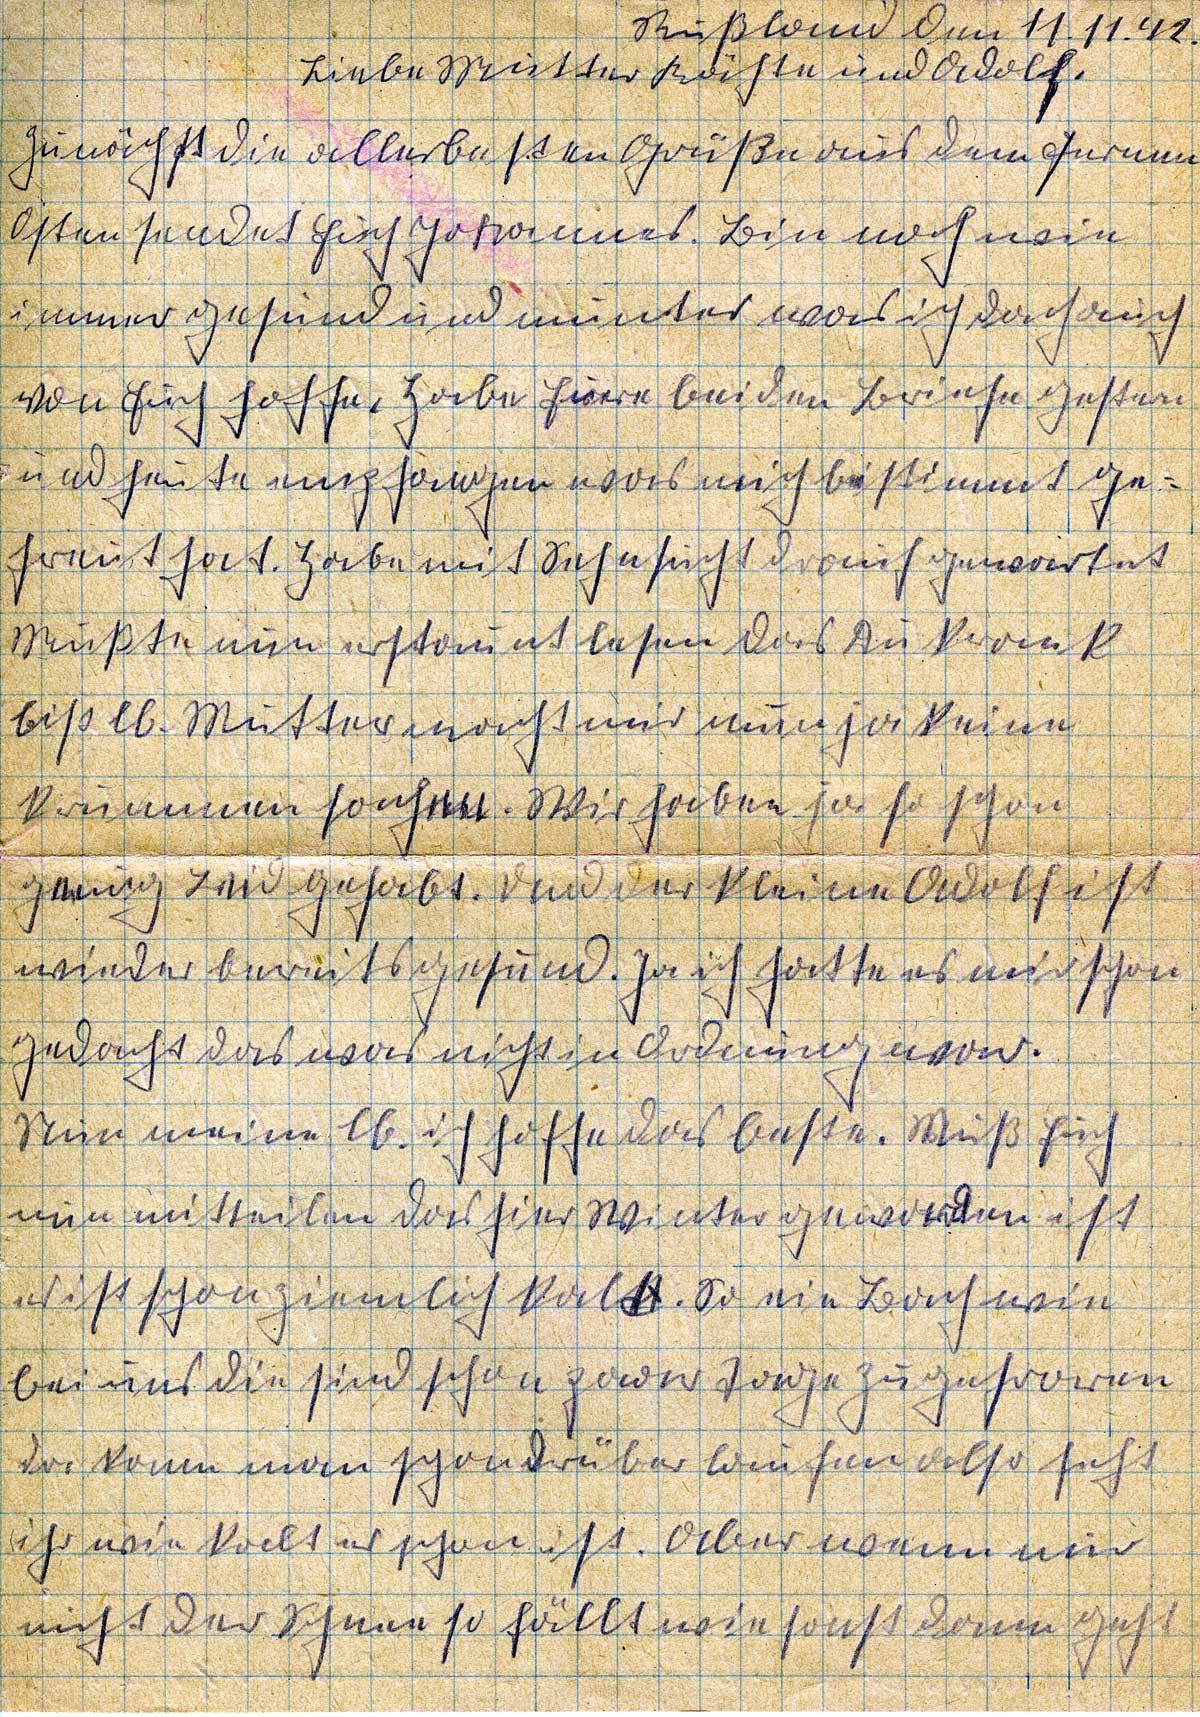 Rußland den 11.11.42.
Liebe Mutter Käthe und Adolf.
Zunächst die allerbesten Grüße aus dem fernen
Osten sendet Euch Johannes. Bin noch wie
immer gesund und munter was ich doch auch
von Euch hoffe, habe Euere beiden Briefe gestern
und heute empfangen was mich bestimmt ge=
freut hat. Habe mit Sehnsucht drauf gewartet
Mußte nun erstaunt lesen das Du krank
bist lb. Mutter macht mir nun ja keine
krummen sachen. Wir haben ja so schon
genug Leid gehabt. Und der kleine Adolf ist
wieder bereits gesund. Ja ich hatte es mir schon
gedacht das was nicht in Ordnung war.
Nun meine lb. ich hoffe das beste. Muß Euch
nun mitteilen das hier Winter geworden ist
es ist schon ziemlich kalt. So ein Bach wie
bei uns die sind schon paar Tage zugefroren
da kann man schon drüber laufen also seht
ihr wie kalt es schon ist. Aber wenn nur
nicht der Schnee so fällt wie sonst dann geht